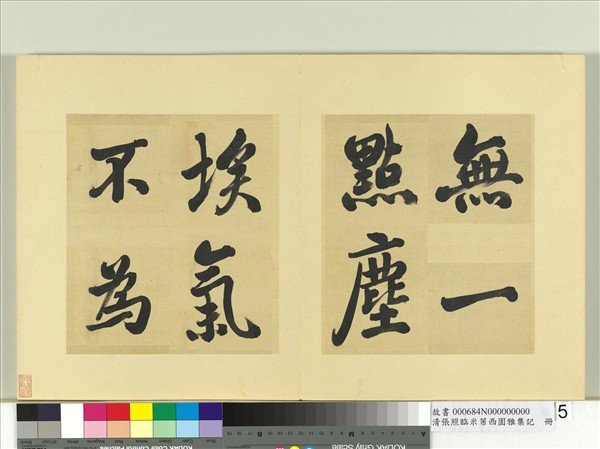 無一
點塵
埃氣
不為
故書 000684N000000000
清張照臨米芾西園雅集記 冊
5
KODAK Gray Scale